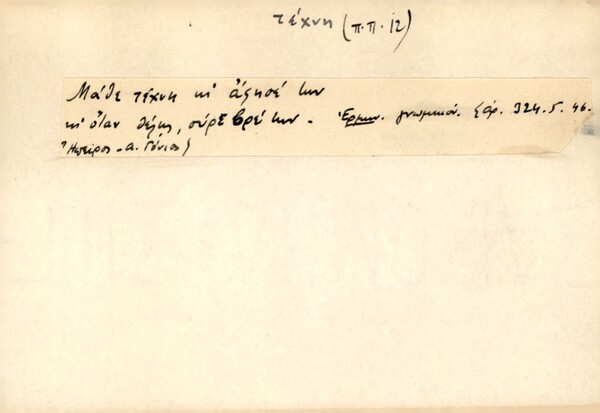 τέχνη (π.π. 12)
Μάθε τέχνη κι' άφησέ την
κι' όταν θέλης, σύρε βρέ την. - Ερμην. γνωμικόν. ξαρ. 324. 5. 46.
Ήπειρος - α. Γόνιος